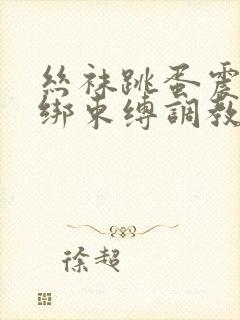 丝袜跳蛋震
绑束缚調教
徐超